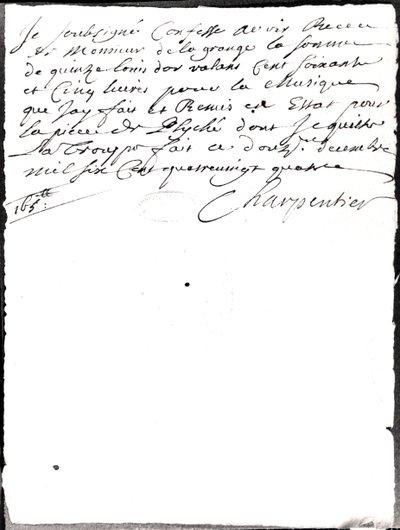 Je soubsigné Confesse avoir Receu
de Monsieur de la grange la somme
de quinze louis dor valans Cent Soixante
et Cinq livres pour la Musique
que Jay fait et Remis en Estat pour
la piece de Psyché dont Je quitte
la Troupe fait ce douze decembre
mil six Cent quatrevingt quatre
165ᵗᵗ:
Charpentier